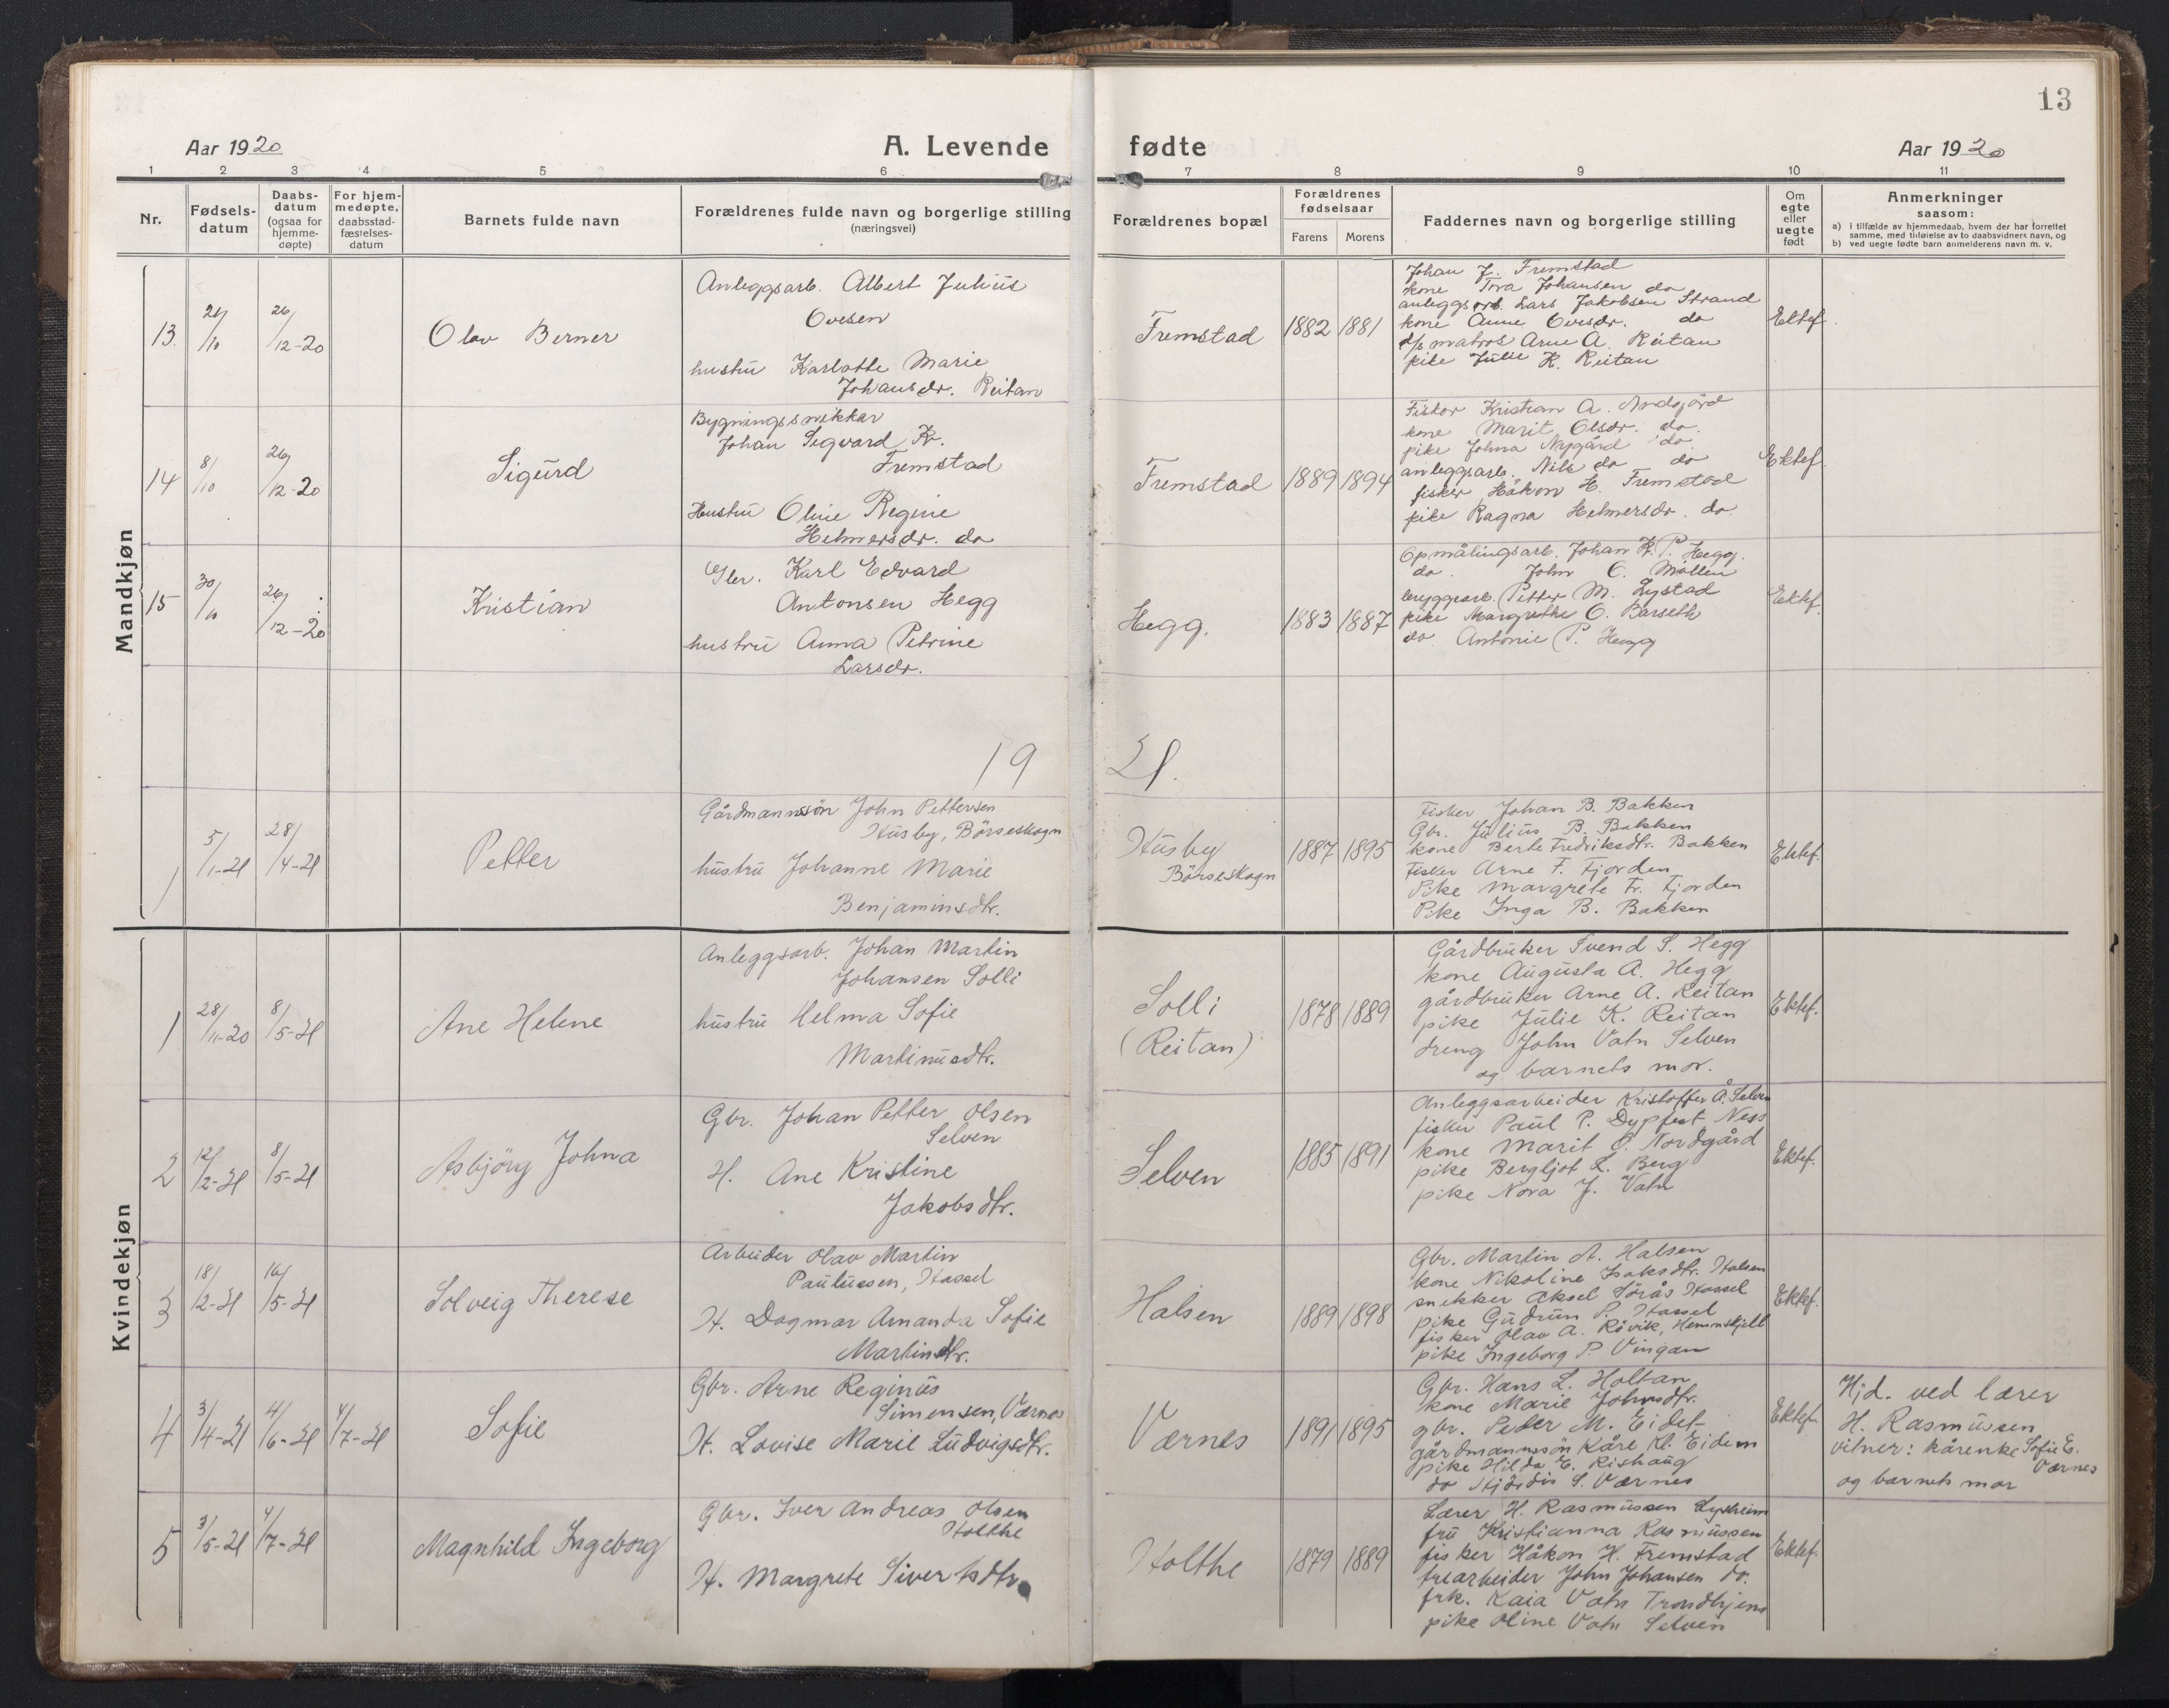 13
Aar 1920
A. Levende fødte
Aar 1920
1 2 3 4 5 6 7 8 9 10 11
Nr.
Fødsels-
datum
Daabs-
datum
(ogsaa for
hjemme-
døpte)
For hjem-
medøpte,
daabsstad-
fæstelses-
datum
Barnets fulde navn
Forældrenes fulde navn og borgerlige stilling
(næringsvei)
Forældrenes bopæl
Forældrenes
fødselsaar
Farens Morens
Faddernes navn og borgerlige stilling
Om
egte
eller
uegte
født
Anmerkninger
saasom:
a) i tilfælde av hjemmedaab, hvem der har forrettet
samme, med tilføielse av to daabsvidners navn, og
b) ved uegte fødte barn anmelderens navn m. v.
Mandkjøn
13.
/10
26/12-20
Olav Berner
Anleggsarb. Albert Julius
Ovesen
hustru Karlotte Marie
Johansdr. Reitan
Fremstad
1882 1881
Johan J. Fremstad
kone Tora Johansen do
anleggsarb. Lars Jakobsen Strand
kone Anne Ovesdr. do
matros Arne A. Reitan
pike Julie K. Reitan
Ektef.
14
8/10
26/12-20
Sigurd
Bygningssnikkar
Johan Sigvard K.
Fremstad
Hustru Oline Regine
Helmersdr. do
Fremstad
1889 1894
Fisker Kristian A.
kone Marit Olsdr. do.
pike Johna Nygård do
anleggsarb. Nils do do
fisker Håkon H. Fremstad
pike Ragna Helmersdr. do.
Ektef.
15
30/10
26/12-20
Kristian
Gbr. Karl Edvard
Antonsen Hegg
hustru Anna Petrine
Larsdr.
Hegg.
1883 1887
Opmålingsarb. Johan K. P. Hegg.
do. John O. Möllen
bryggearb. Petter M. Lystad
pike Margrethe O. Barseth
do Antonie P. Hegg
Ektef.
19 21.
1
5/1-21
28/4-21
Petter
Gårdmannssön John Pettersen
Husby, Börseskogn
hustru Johanne Marie
Benjaminsdtr.
Husby
Börseskogn
1887 1895
Fisker Johan B. Bakken
Gbr. Julius B. Bakken
kone Berte Fredriksdtr. Bakken
Fisker Arne F. Fjorden
Pike Margrete Fr. Fjorden
Pike Inga B. Bakken
Ektef.
Kvindekjøn
1
28/11-20
8/5-21
Ane Helene
Anleggsarb. Johan Martin
Johansen Solli
hustru Helma Sofie
Martinusdtr.
Solli
(Reitan)
1878 1889
Gårdbruker Svend S. Hegg
kone Augusta A. Hegg
gårdbruker Arne A. Reitan
pike Julie K. Reitan
dreng John Vatn Selven
og barnets mor.
Ektef.
2
12/2-21
8/5-21
Asbjörg Johna
Gbr. Johan Petter Olsen
Selven
H. Ane Kristine
Jakobsdtr.
Selven
1885 1891
Anleggsarbeider Kristoffer Å. Selven
fisker Paul P. Dypfest Ness
kone Marit O. Nordgård
pike Bergljot L. Berg
pike Nora J. Vatn
Ektef.
3
18/2-21
16/5-21
Solveig Therese
Arbeider Olav Martin
Paulussen, Hassel
H. Dagmar Amanda Sofie
Martinsdtr.
Halsen
1889 1898
Gbr. Martin A. Halsen
kone Nikoline Isaksdtr. Halsen
snekker Aksel Sörås Hassel
pike Gudrun P. Hassel
fisker Olav A. Røvik, Hemnskjell
pike Ingeborg P. Vingan
Ektef.
4
3/4-21
4/6-21
4/7-21
Sofie
Gbr. Arne Reginus
Simensen, Værnes
H. Lovise Marie Ludvigsdtr.
Værnes
1891 1895
Gbr. Hans L. Holtan
kone Marie Johnsdtr.
gbr. Peder M. Eidet
gårdmannssön Kåre Kl. Eidem
pike Hilda E. Rishaug
do Hjördis S. Værnes
Ektef.
Hjd. ved lærer
H. Rasmussen
vitner: kårenke Sofie E.
Værnes
og barnets mor
5
3/5-21
4/7-21
Magnhild Ingeborg
Gbr. Iver Andreas Olsen
Holthe
H. Margrete Sivertsdtr.
Holthe
1879 1889
Lærer H. Rasmussen Lysheim
fru Kristianna Rasmussen
fisker Håkon H. Fremstad
trearbeider John Johansen do.
frk. Kaia Vatn Trondhjem
pike Oline Vatn Selven
Ektef.